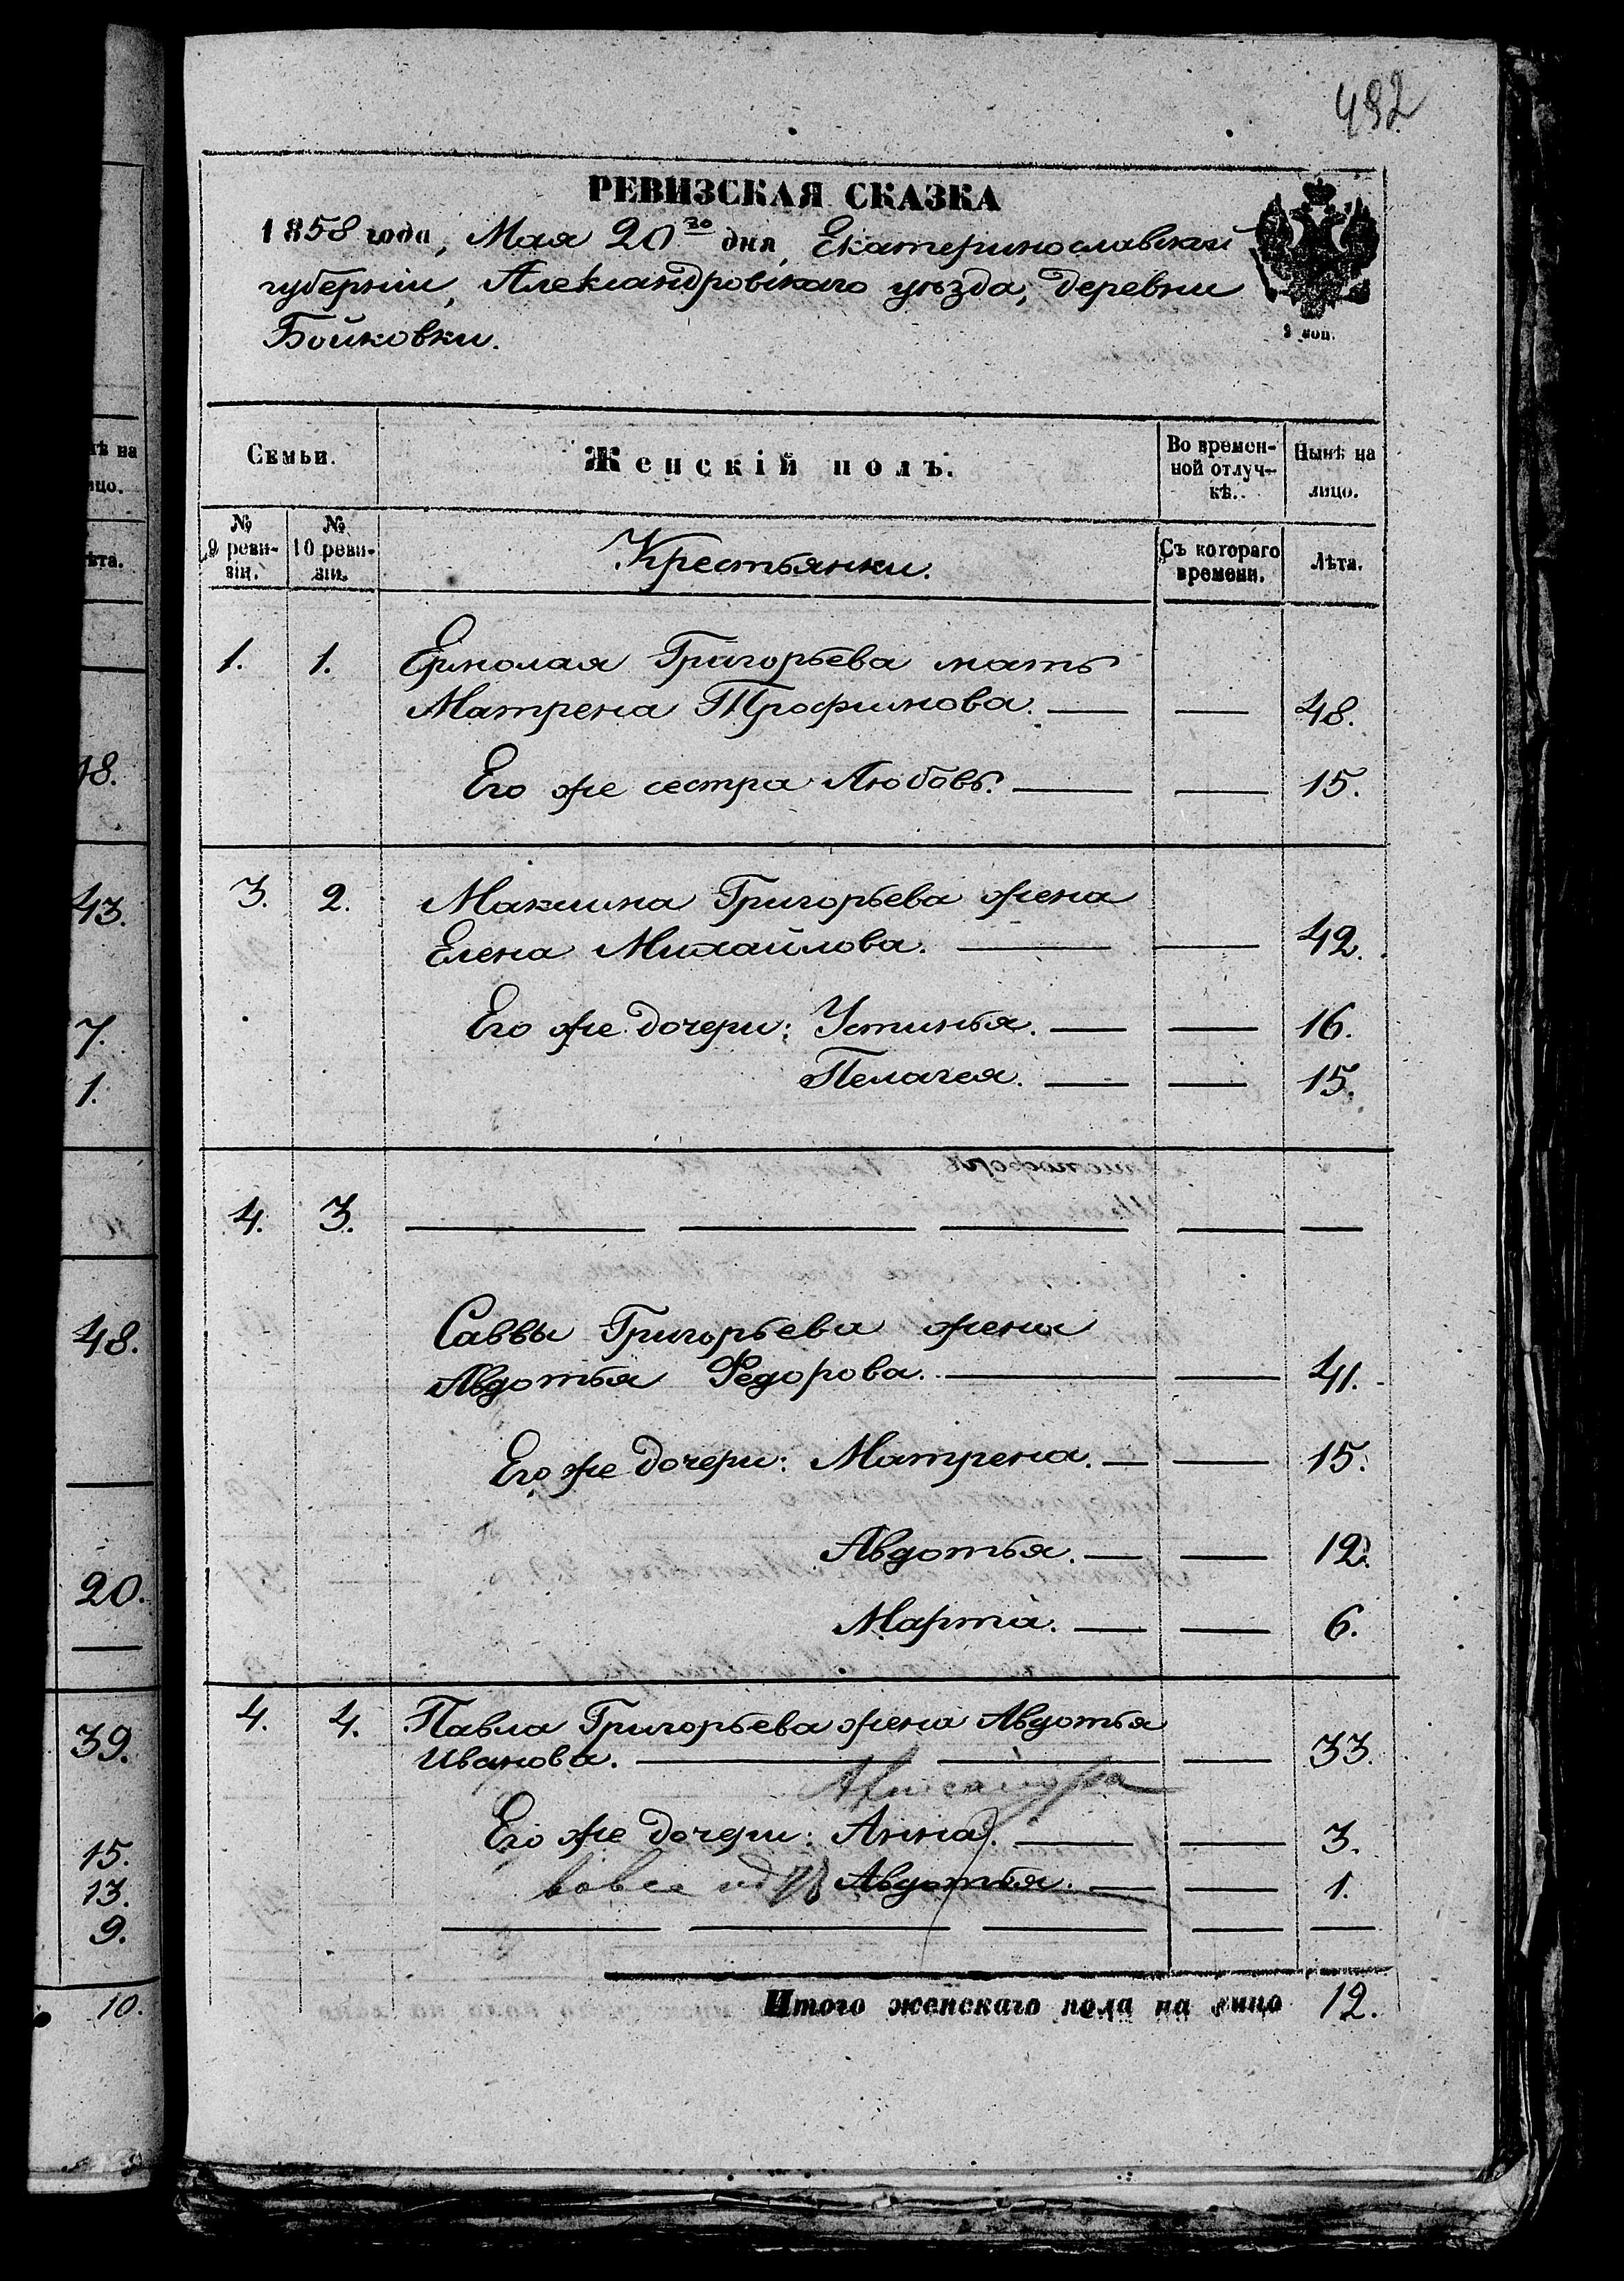 492
РЕВИЗСКАЯ СКАЗКА
1858 года, Мая 20го дня, Екатеринославской
губерніи, Александровскаго уѣзда, деревни
Бойковки.
2 коп.
Семьи.
Женскій полъ.
Во времен-
ной отлуч-
кѣ.
Нынѣ на
лицо.
№
9 реви-
зіи.
№
10 реви-
зіи.
Крестьянки.
Съ котораго
времени.
Лѣта.
1. 1. Ермолая Григорьева мать
Матрена Трофимова. — — 48.
Его же сестра Любовь. — — 15.
3. 2. Максима Григорьева жена
Елена Михайлова. — — 42.
Его же дочери: Устинья. — — 16.
Пелагея. — — 15.
4. 3. — — — — —
Саввы Григорьева жена
Авдотья Федорова. — — 41.
Его же дочери: Матрена. — — 15.
Авдотья. — — 12.
Марта. — — 6.
4. 4. Павла Григорьева жена Авдотья
Иванова. — — — 33.
Его же дочери: Анна. — — 3.
Авдотья. — — 1.
— — — — —
Итого женскаго пола на лицо 12.
ѣ на
ицо.
ѣта.
18.
43.
7.
1.
48.
20.
39.
15.
13.
9.
10.